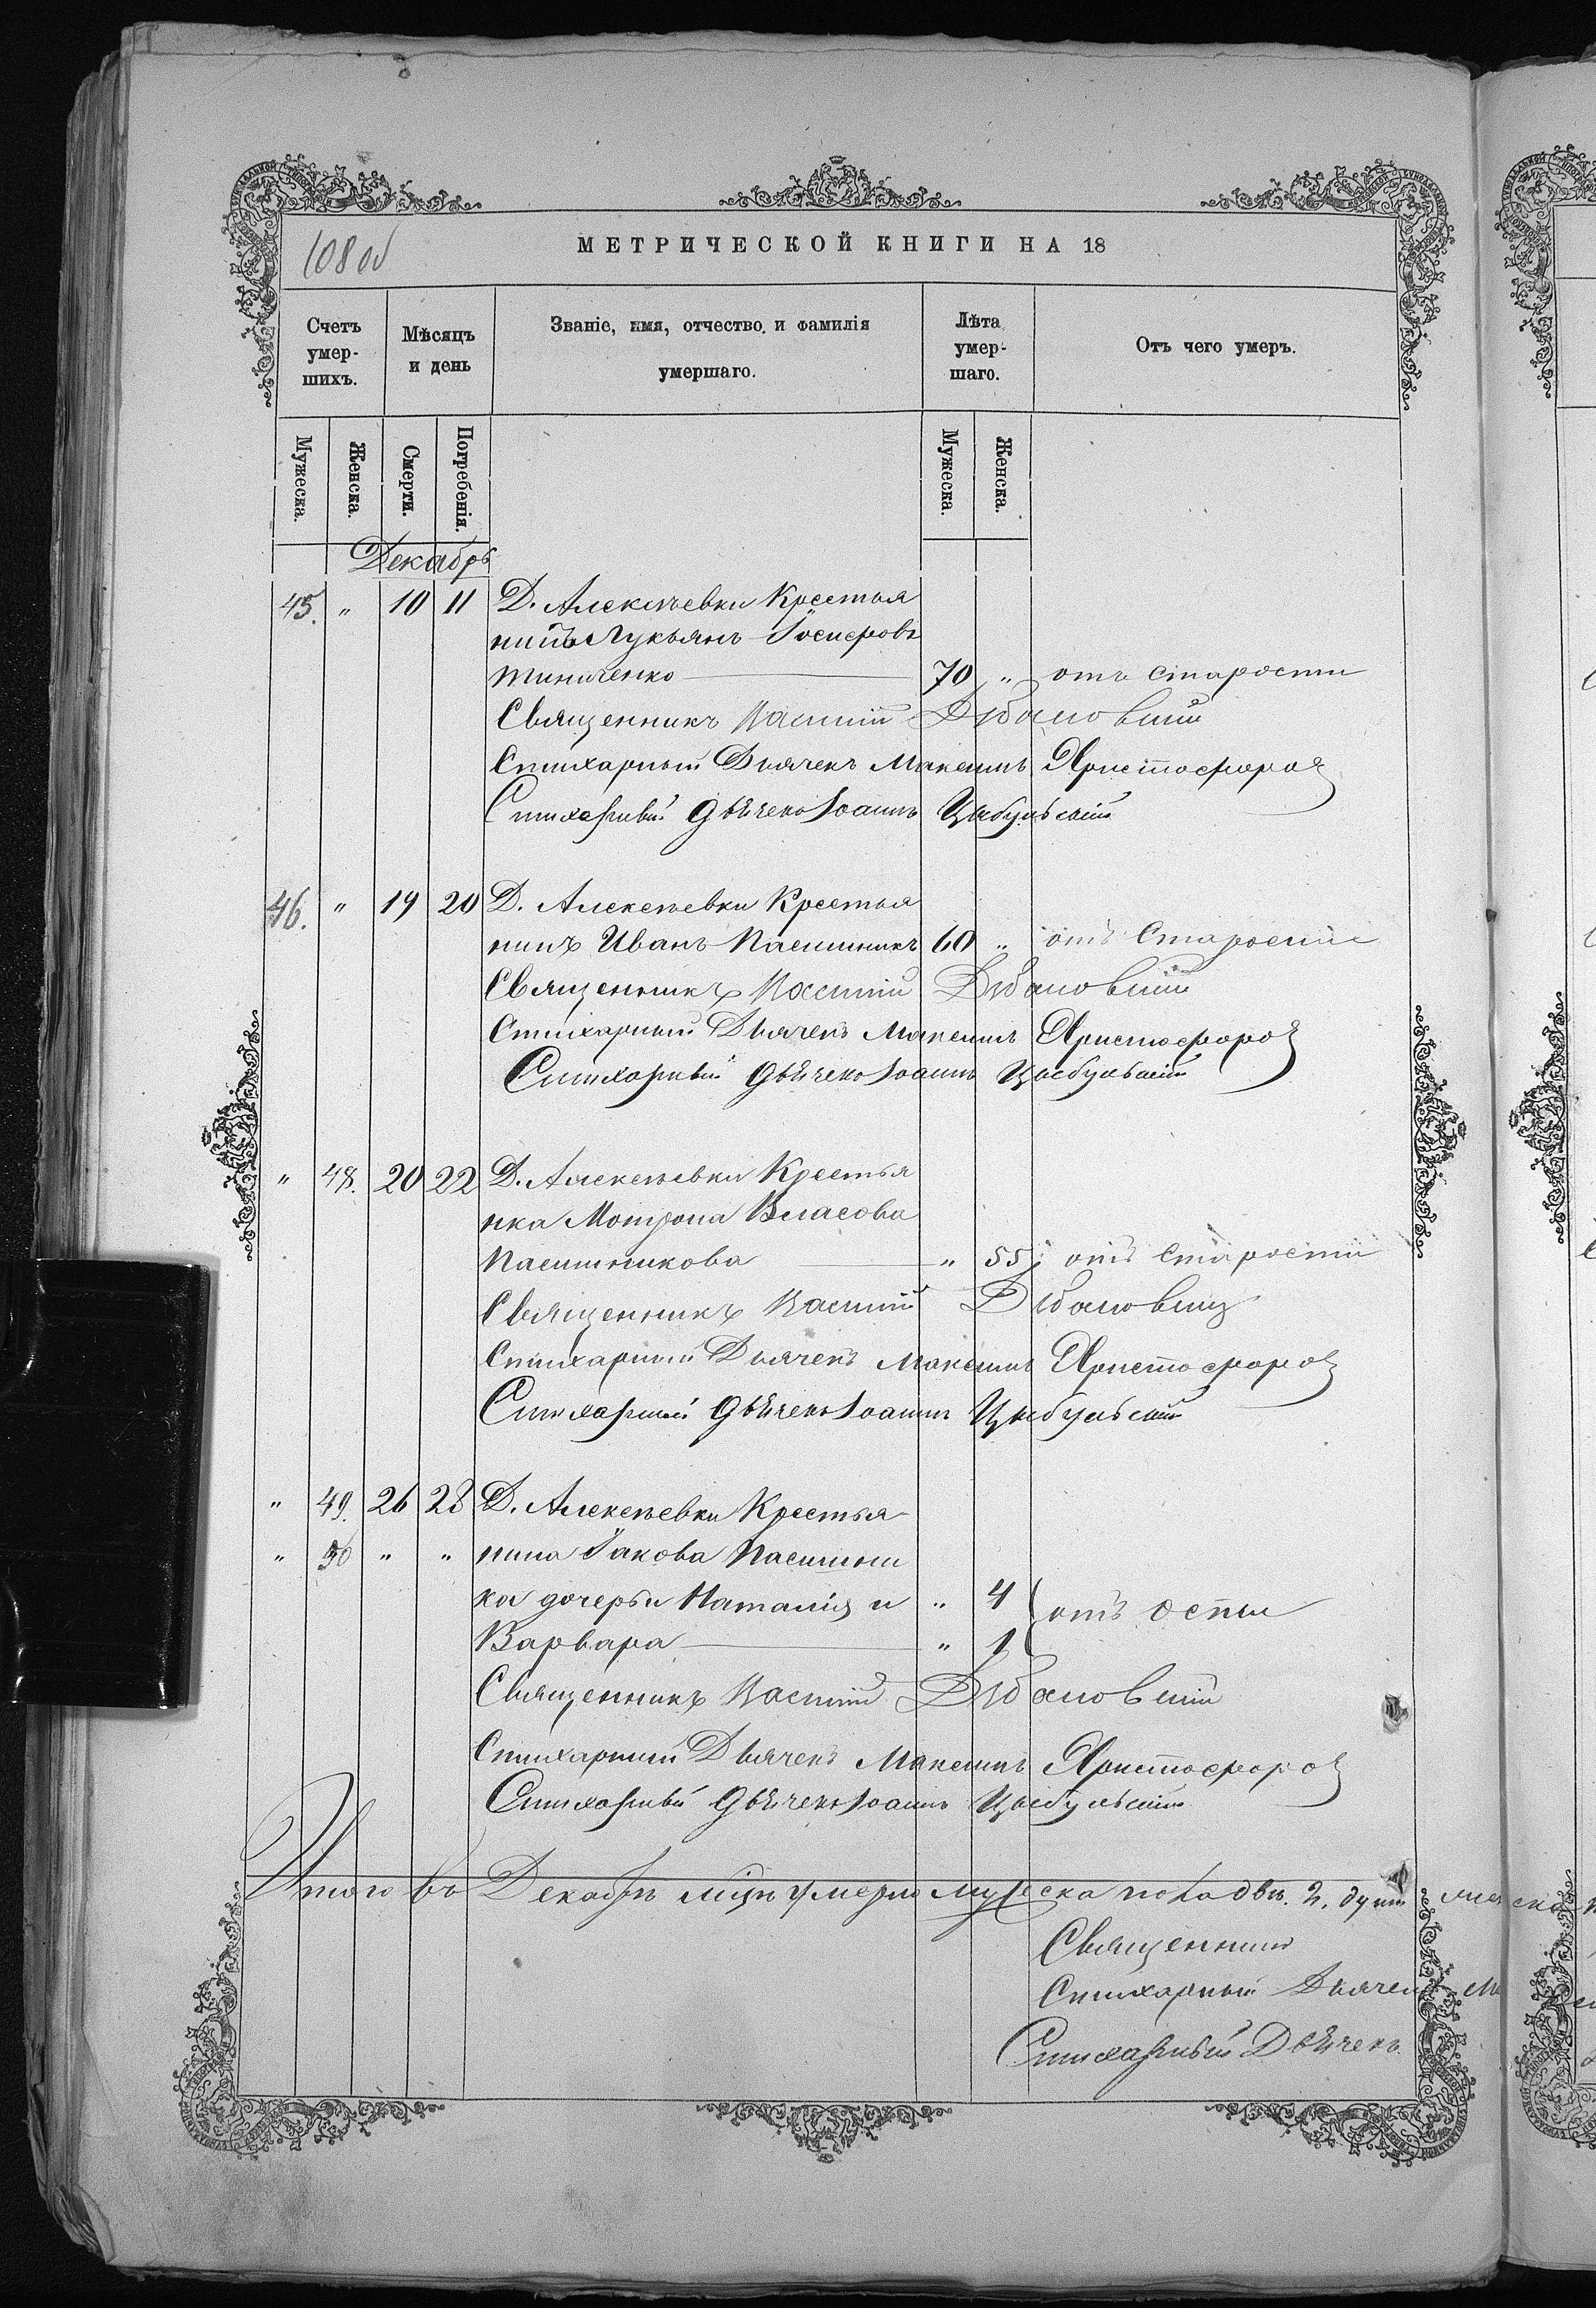 108 об
МЕТРИЧЕСКОЙ КНИГИ НА 18
Счетъ умер-шихъ.
Мѣсяцъ и день
Званіе, имя, отчество и фамилія умершаго.
Лѣта умер-шаго.
Отъ чего умеръ.
Мужеска.
Женска.
Смерти.
Погребенія.
Мужеска.
Женска.
Декабрь
45. " 10 11 Д. Алексѣевки Крестья
нинъ Лукьянъ
Тимченко 70 " отъ старости
Священникъ Василій
Стихарный Дьячекъ Максимъ Христофоров
Стихарный Дьячекъ Іоаннъ Цыбульскій
46. " 19 20 Д. Алексѣевки Крестья
нинъ Иванъ Пасишникъ 60 " отъ Старости
Священникъ Василій
Стихарный Дьячекъ Максимъ Христофоров
Стихарный Дьячекъ Іоаннъ Цыбульскій
" 48. 20 22 Д. Алексѣевки Крестья
нка Мотрона Власова
Пасишникова " 55 отъ Старости
Священникъ Василій
Стихарный Дьячекъ Максимъ Христофоров
Стихарный Дьячекъ Іоаннъ Цыбульскій
" 49. 26 28 Д. Алексѣевки Крестья
" 50 " " нина Іакова Пасишни
ка дочеры Наталія и " 4 отъ Оспы
Варвара " 1
Священникъ Василій
Стихарный Дьячекъ Максимъ Христофоров
Стихарный Дьячекъ Іоаннъ Цыбульскій
Итого въ Декабрѣ мцѣ умерло мужеска пола двѣ. 2. души
Священникъ
Стихарный Дьячекъ
Стихарный Дьячекъ